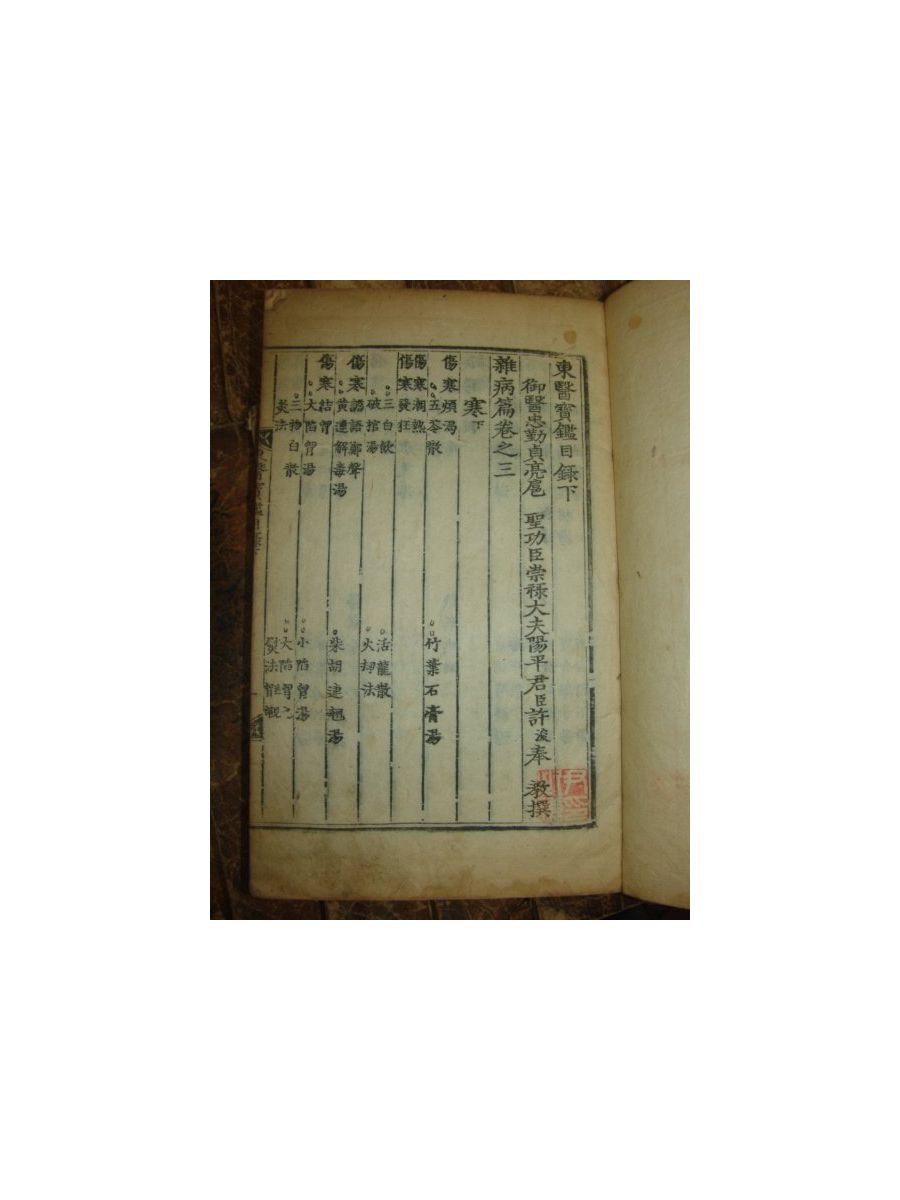 東醫寶鑑目錄下
御醫忠勤貞亮扈 聖功臣崇祿大夫陽平君臣許浚奉 敎撰
雜病篇卷之三
寒下
傷寒煩渴
五苓散 竹葉石膏湯
傷寒潮熱
傷寒發狂
三白飮 活龍散
破棺湯 火劫法
傷寒譫語鄭聲
黃連解毒湯 柴胡連翹湯
傷寒結胷
大陷胷湯 小陷胷湯
三物白散 大陷胷丸
灸法